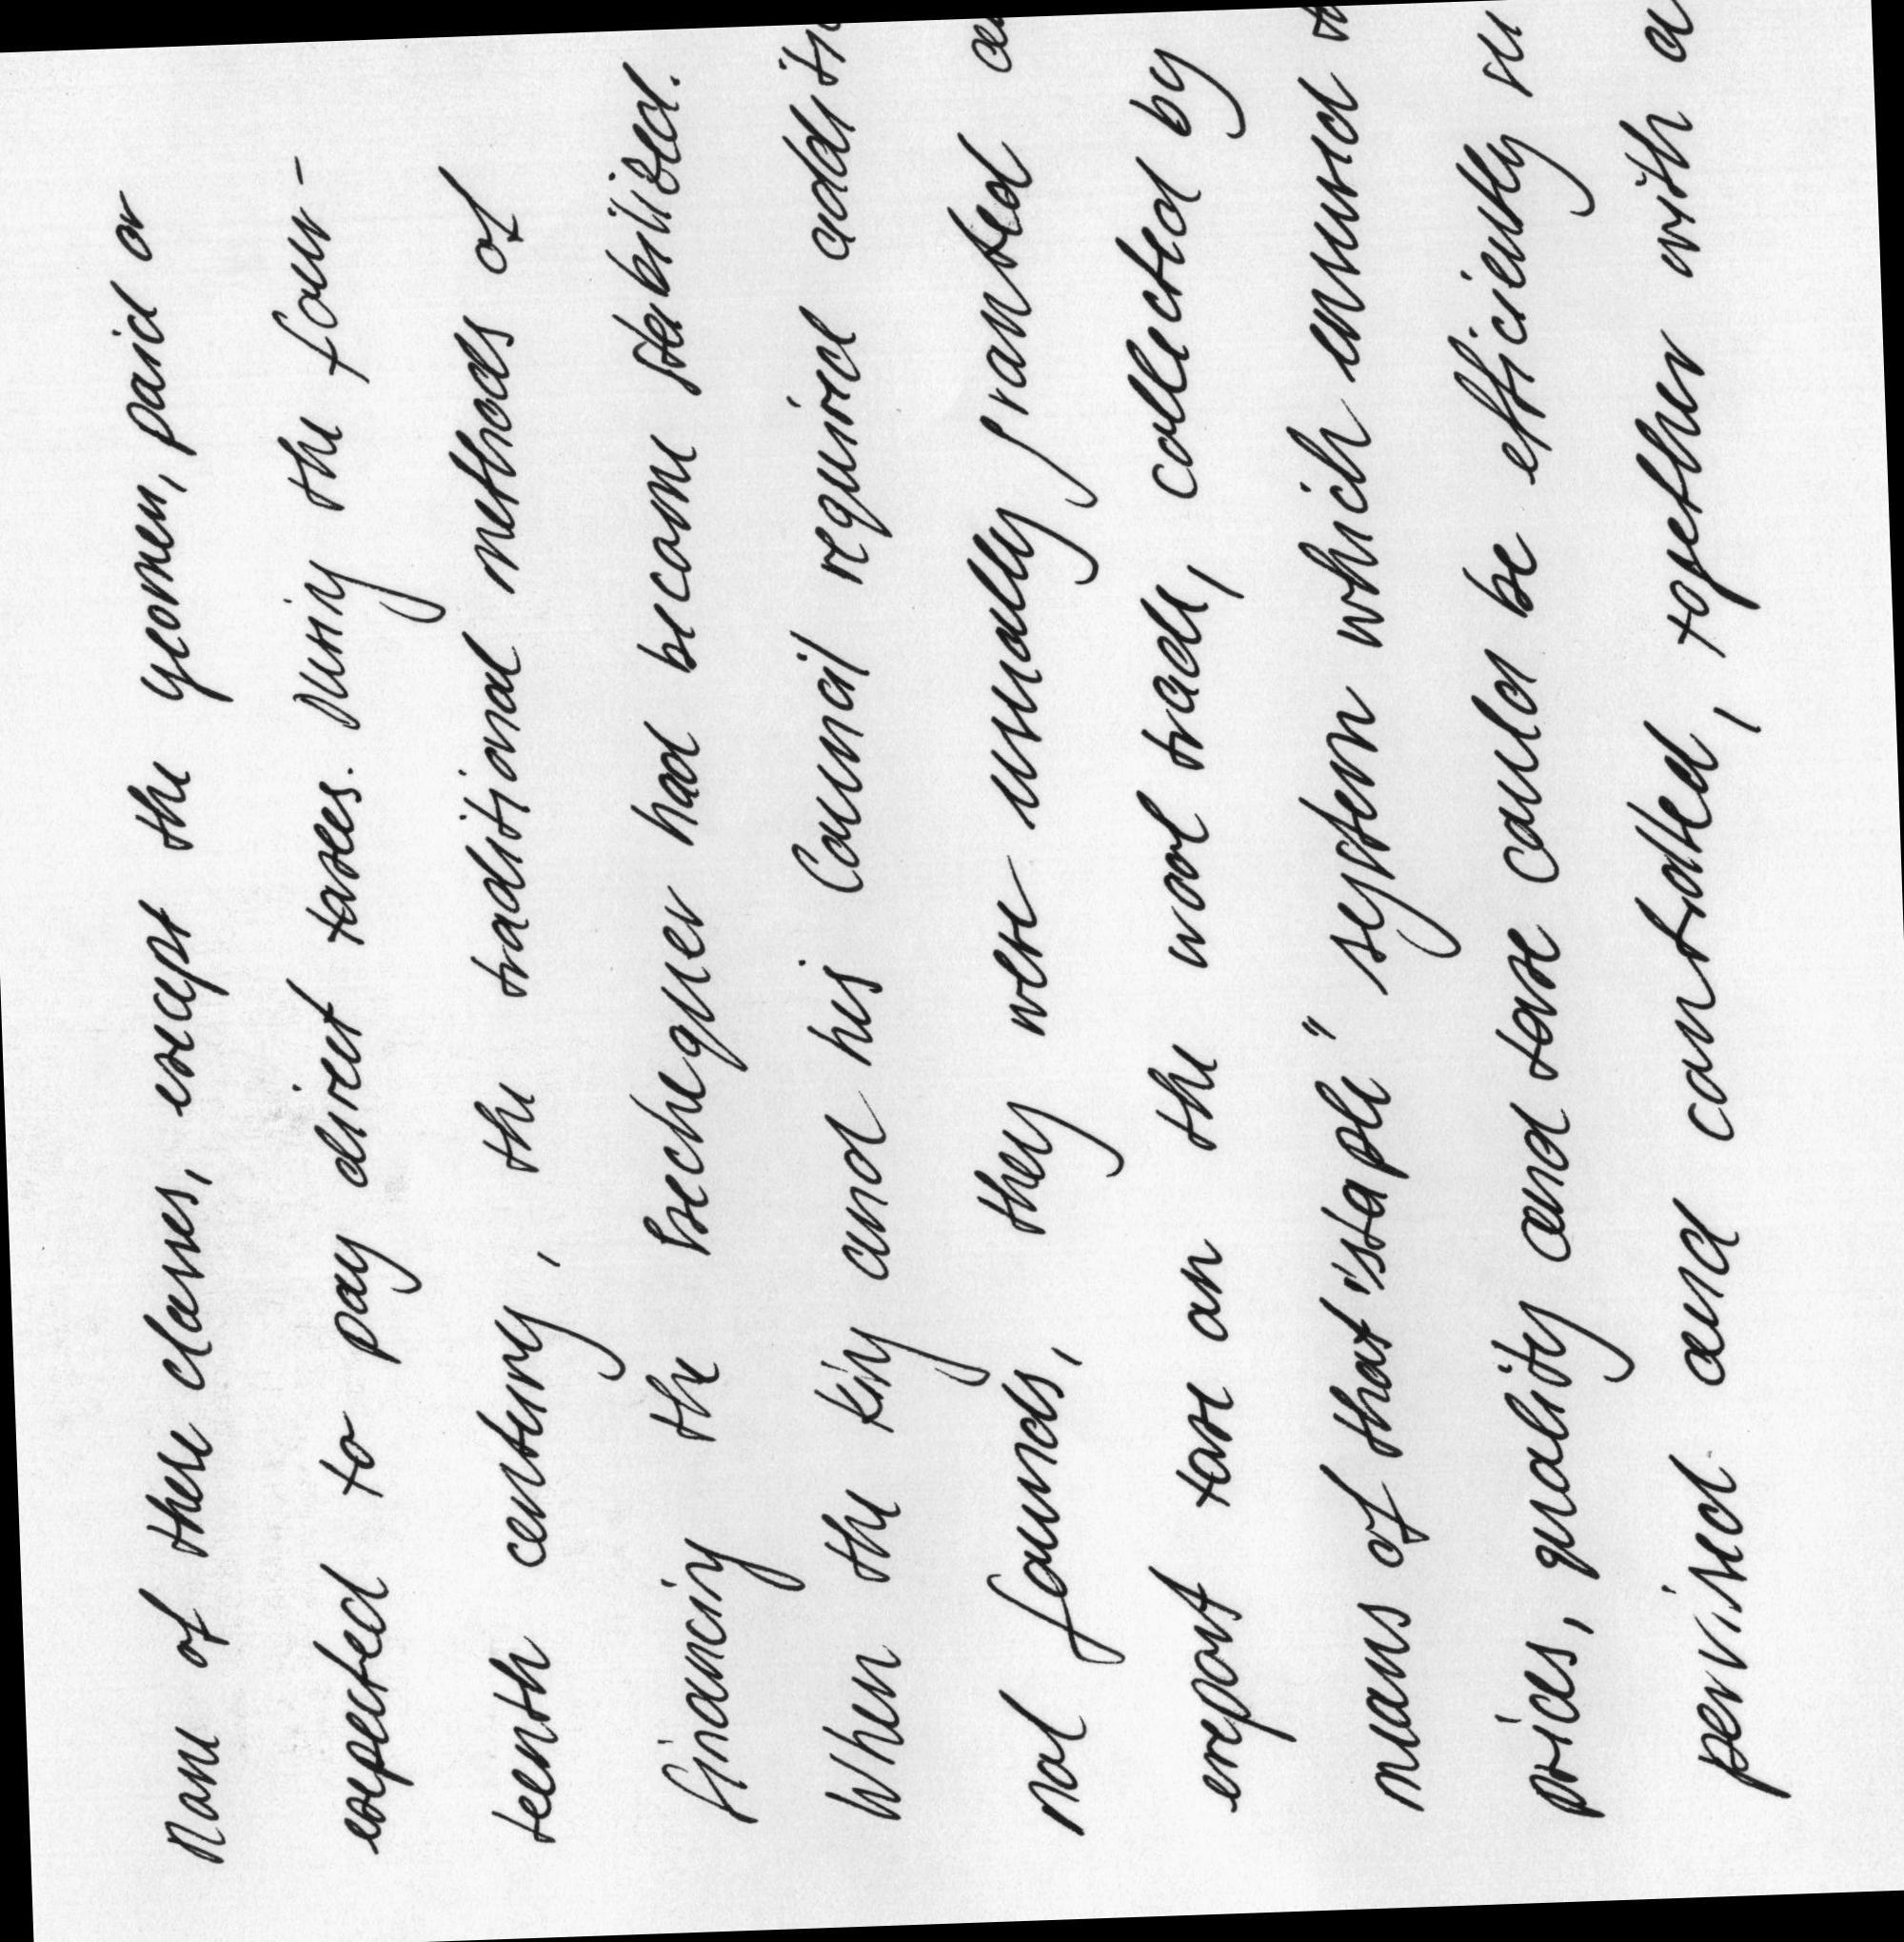 None of these classes, except the yeomen, paid or
expected to pay direct taxes. During the four-
teenth century, the traditional methods of
financing the Exchequer had become stabilised.
When the King and his Council required additio
nal founds, they were usually granted a
export tax on the wool trade, collected by
means of that "staple" system which ensured th
prices, quality and taxe could be efficiently su
pervised and controlled, together with a